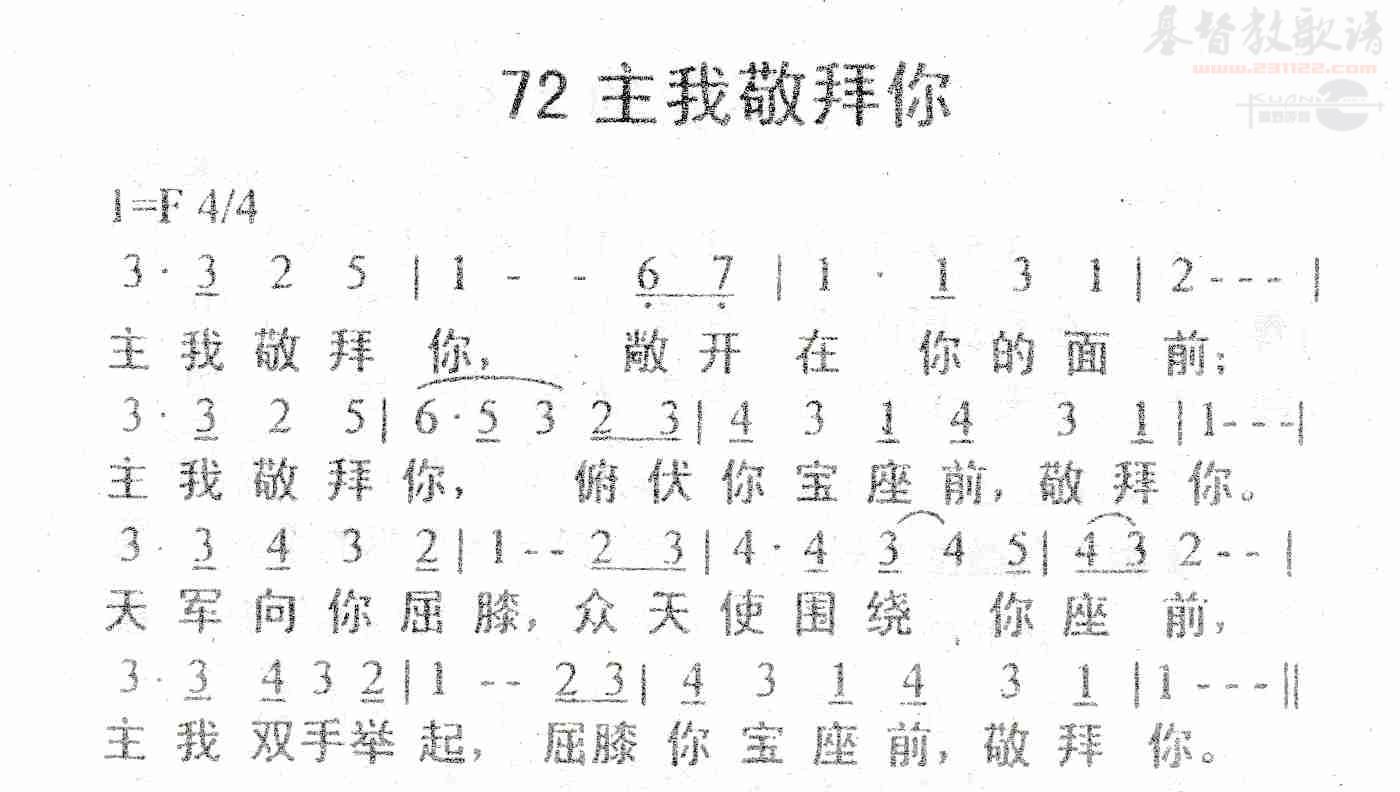 基督教歌谱
www.231122.com
72 主我敬拜你
1=F 4/4
3 · 3 2 5 | 1 - - 6 7 | 1 · 1 3 1 | 2 - - - |
主 我 敬 拜 你， 敞 开 在 你 的 面 前；
3 · 3 2 5 | 6 · 5 3 2 3 | 4 3 1 4 3 1 | 1 - - - |
主 我 敬 拜 你， 俯 伏 你 宝 座 前，敬 拜 你。
3 · 3 4 3 2 | 1 - - 2 3 | 4 · 4 3 4 5 | 4 3 2 - - |
天 军 向 你 屈 膝，众 天 使 围 绕 你 座 前，
3 · 3 4 3 2 | 1 - - 2 3 | 4 3 1 4 3 1 | 1 - - - ||
主 我 双 手 举 起， 屈 膝 你 宝 座 前，敬 拜 你。